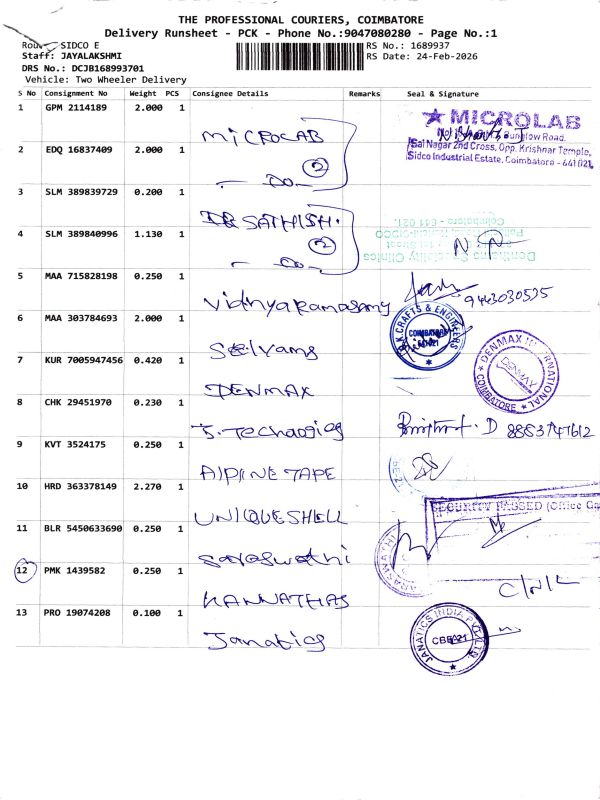 THE PROFESSIONAL COURIERS, COIMBATORE
Delivery Runsheet - PCK - Phone No.:9047080280 - Page No.:1
Route: SIDCO E
RS No.: 1689937
Staff: JAYALAKSHMI
RS Date: 24-Feb-2026
DRS No.: DCJB168993701
Vehicle: Two Wheeler Delivery
S No Consignment No Weight PCS Consignee Details Remarks Seal & Signature
1 GPM 2114189 2.000 1 MICROLAB
MICROLAB
Bunglow Road,
Sai Nagar 2nd Cross, Opp. Krishnar Temple,
Sidco Industrial Estate, Coimbatore - 641 021.
2 EDQ 16837409 2.000 1 - Do - 2
3 SLM 389839729 0.200 1 DR SATHISH.
4 SLM 389840996 1.130 1 - Do - 2
Coimbatore - 641 021.
5 MAA 715828198 0.250 1 Vidhyaramasamy 9443030535
6 MAA 303784693 2.000 1 Selvams
CRAFTS & ENGINEERS
COIMBATORE
7 KUR 7005947456 0.420 1 DENMAX
DENMAX INTERNATIONAL
DENMAX
COIMBATORE
8 CHK 29451970 0.230 1
9 KVT 3524175 0.250 1 AIPINE TAPE
10 HRD 363378149 2.270 1 UNIQUESHELL
SECURITY PASSED
11 BLR 5450633690 0.250 1 Saraswathi
12 PMK 1439582 0.250 1 KANNATHAS
13 PRO 19074208 0.100 1 Janatics
JANATICS INDIA PVT. LTD